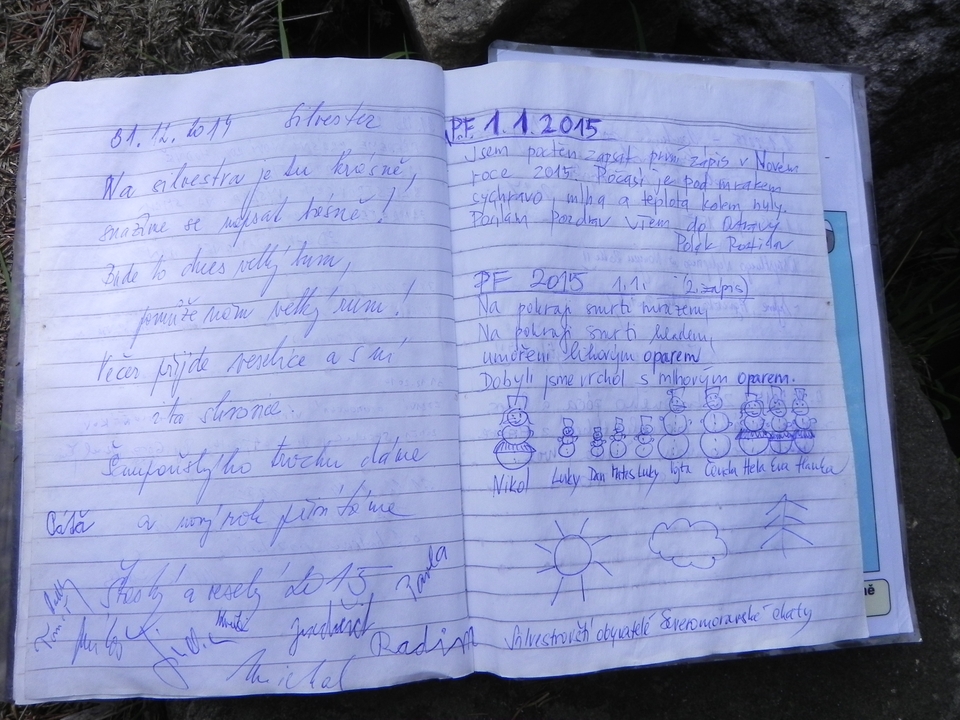 31.12.2014 Silvester
Na silvestra je tu krásně,
snažíme se napsat básně!
Bude to dnes velký
pomůže nám velký rum!
Večer přijde veselice a s ní
i ta
trochu dáme
a nový rok přivítáme
Cáťa
Šťastný a veselý 2015
Michal
Radim
P.F. 1.1.2015
Jsem poctěn zapsat první zápis v Novém
roce 2015. Počasí je pod mrakem
sychravo, mlha a teplota kolem nuly.
Posílám pozdrav všem do Ostravy
Polek Rostislav
PF 2015 1.1. (2. zápis)
Na pokraji smrti mrazem,
Na pokraji smrti hladem,
umořeni lihovým oparem
Dobyli jsme vrchol s mlhovým oparem.
Nikol Luky Dan Luky Vojta Hela Eva Hanka
Silvestrovští obyvatelé Severomoravské chaty
ně